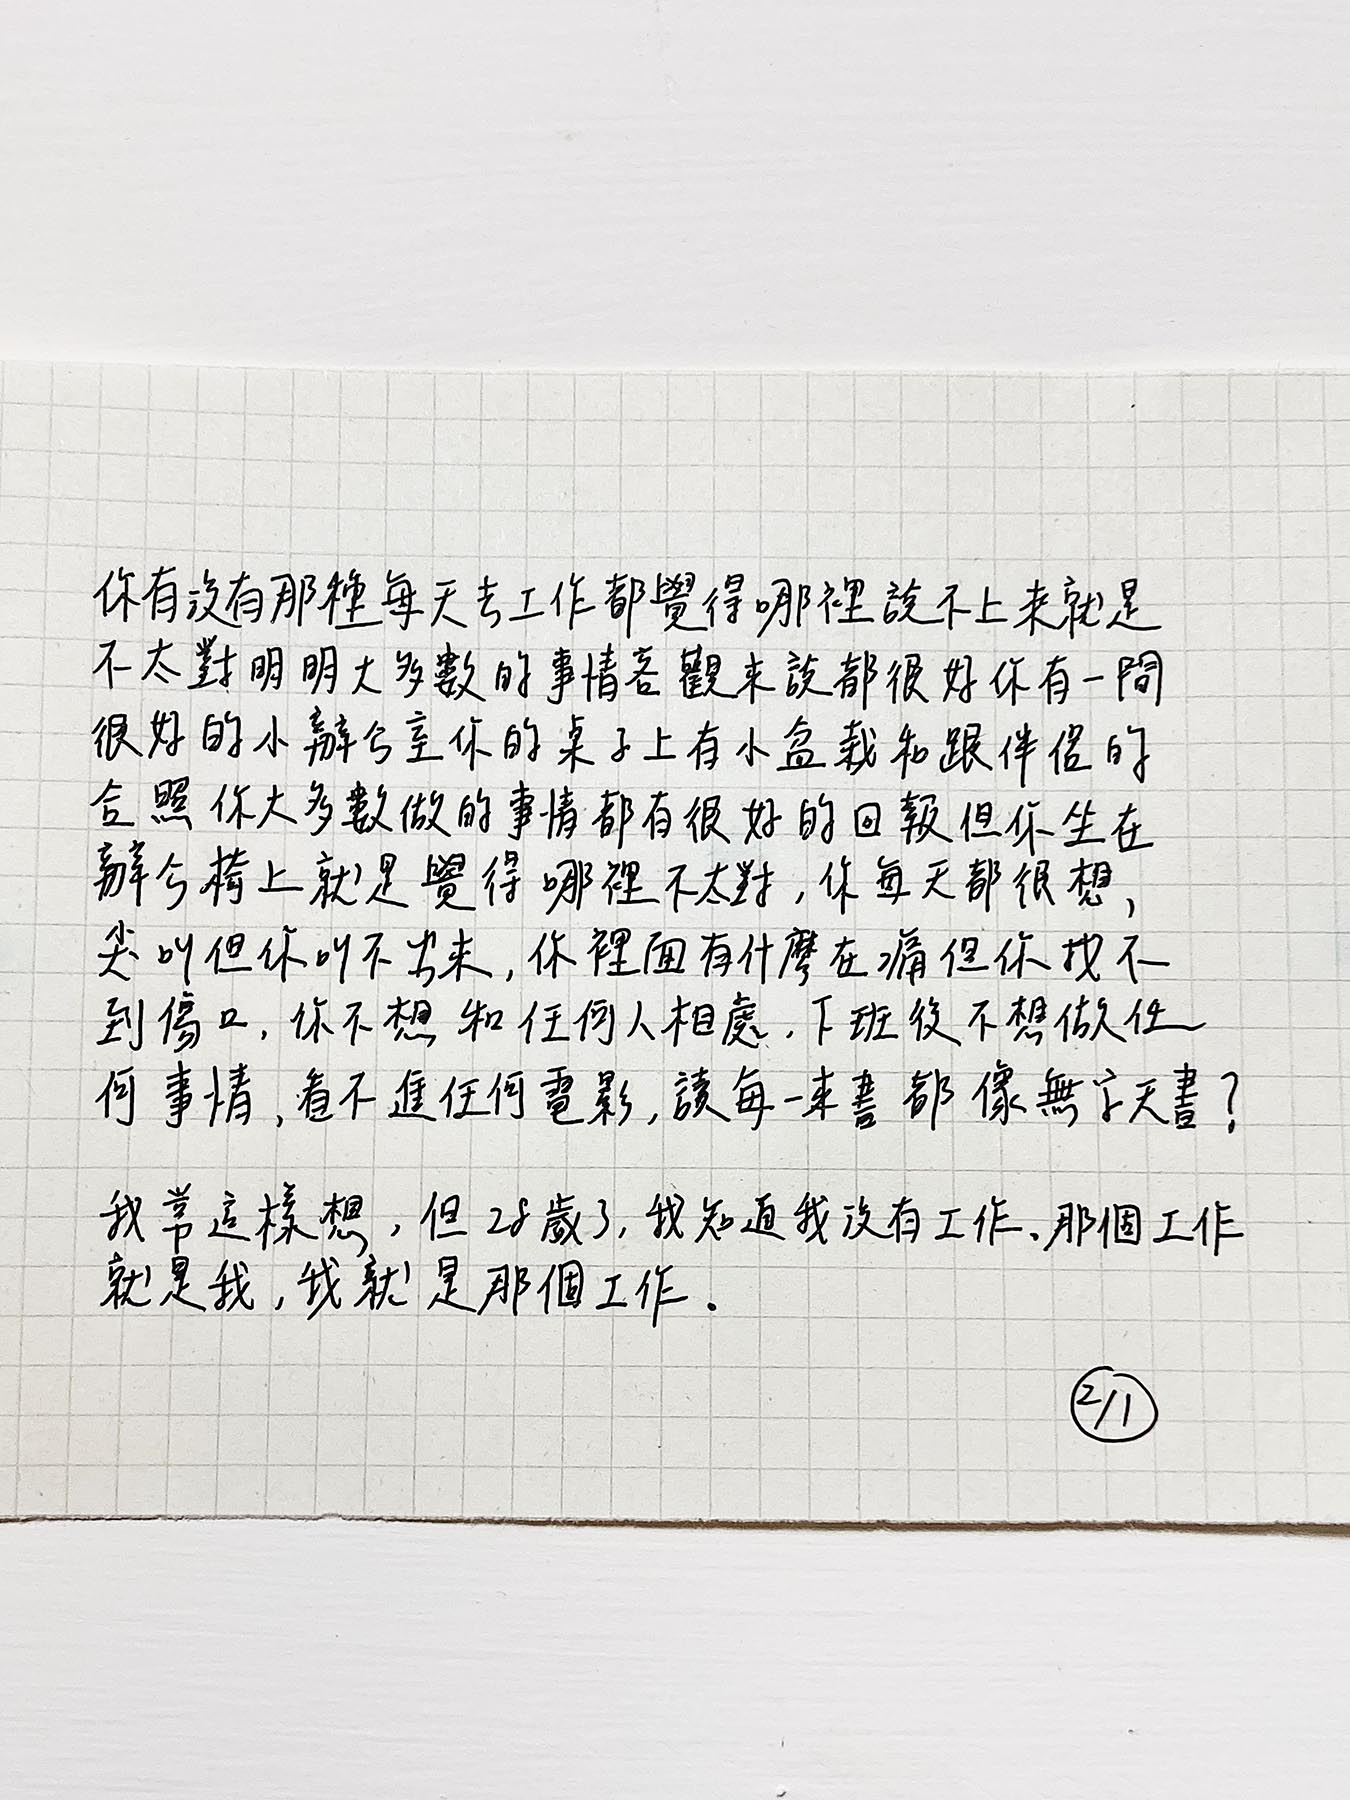 你有沒有那種每天去工作都覺得哪裡說不上來就是
不太對明明大多數的事情客觀來說都很好你有一間
很好的小辦公室你的桌子上有小盆栽和跟伴侶的
合照你大多數做的事情都有很好的回報但你坐在
辦公椅上就是覺得哪裡不太對,你每天都很想,
尖叫但你叫不出來,你裡面有什麼在痛但你找不
到傷口,你不想和任何人相處,下班後不想做任
何事情,看不進任何電影,讀每一本書都像無字天書?
我常這樣想,但28歲了,我知道我沒有工作、那個工作
就是我,我就是那個工作.
2/1